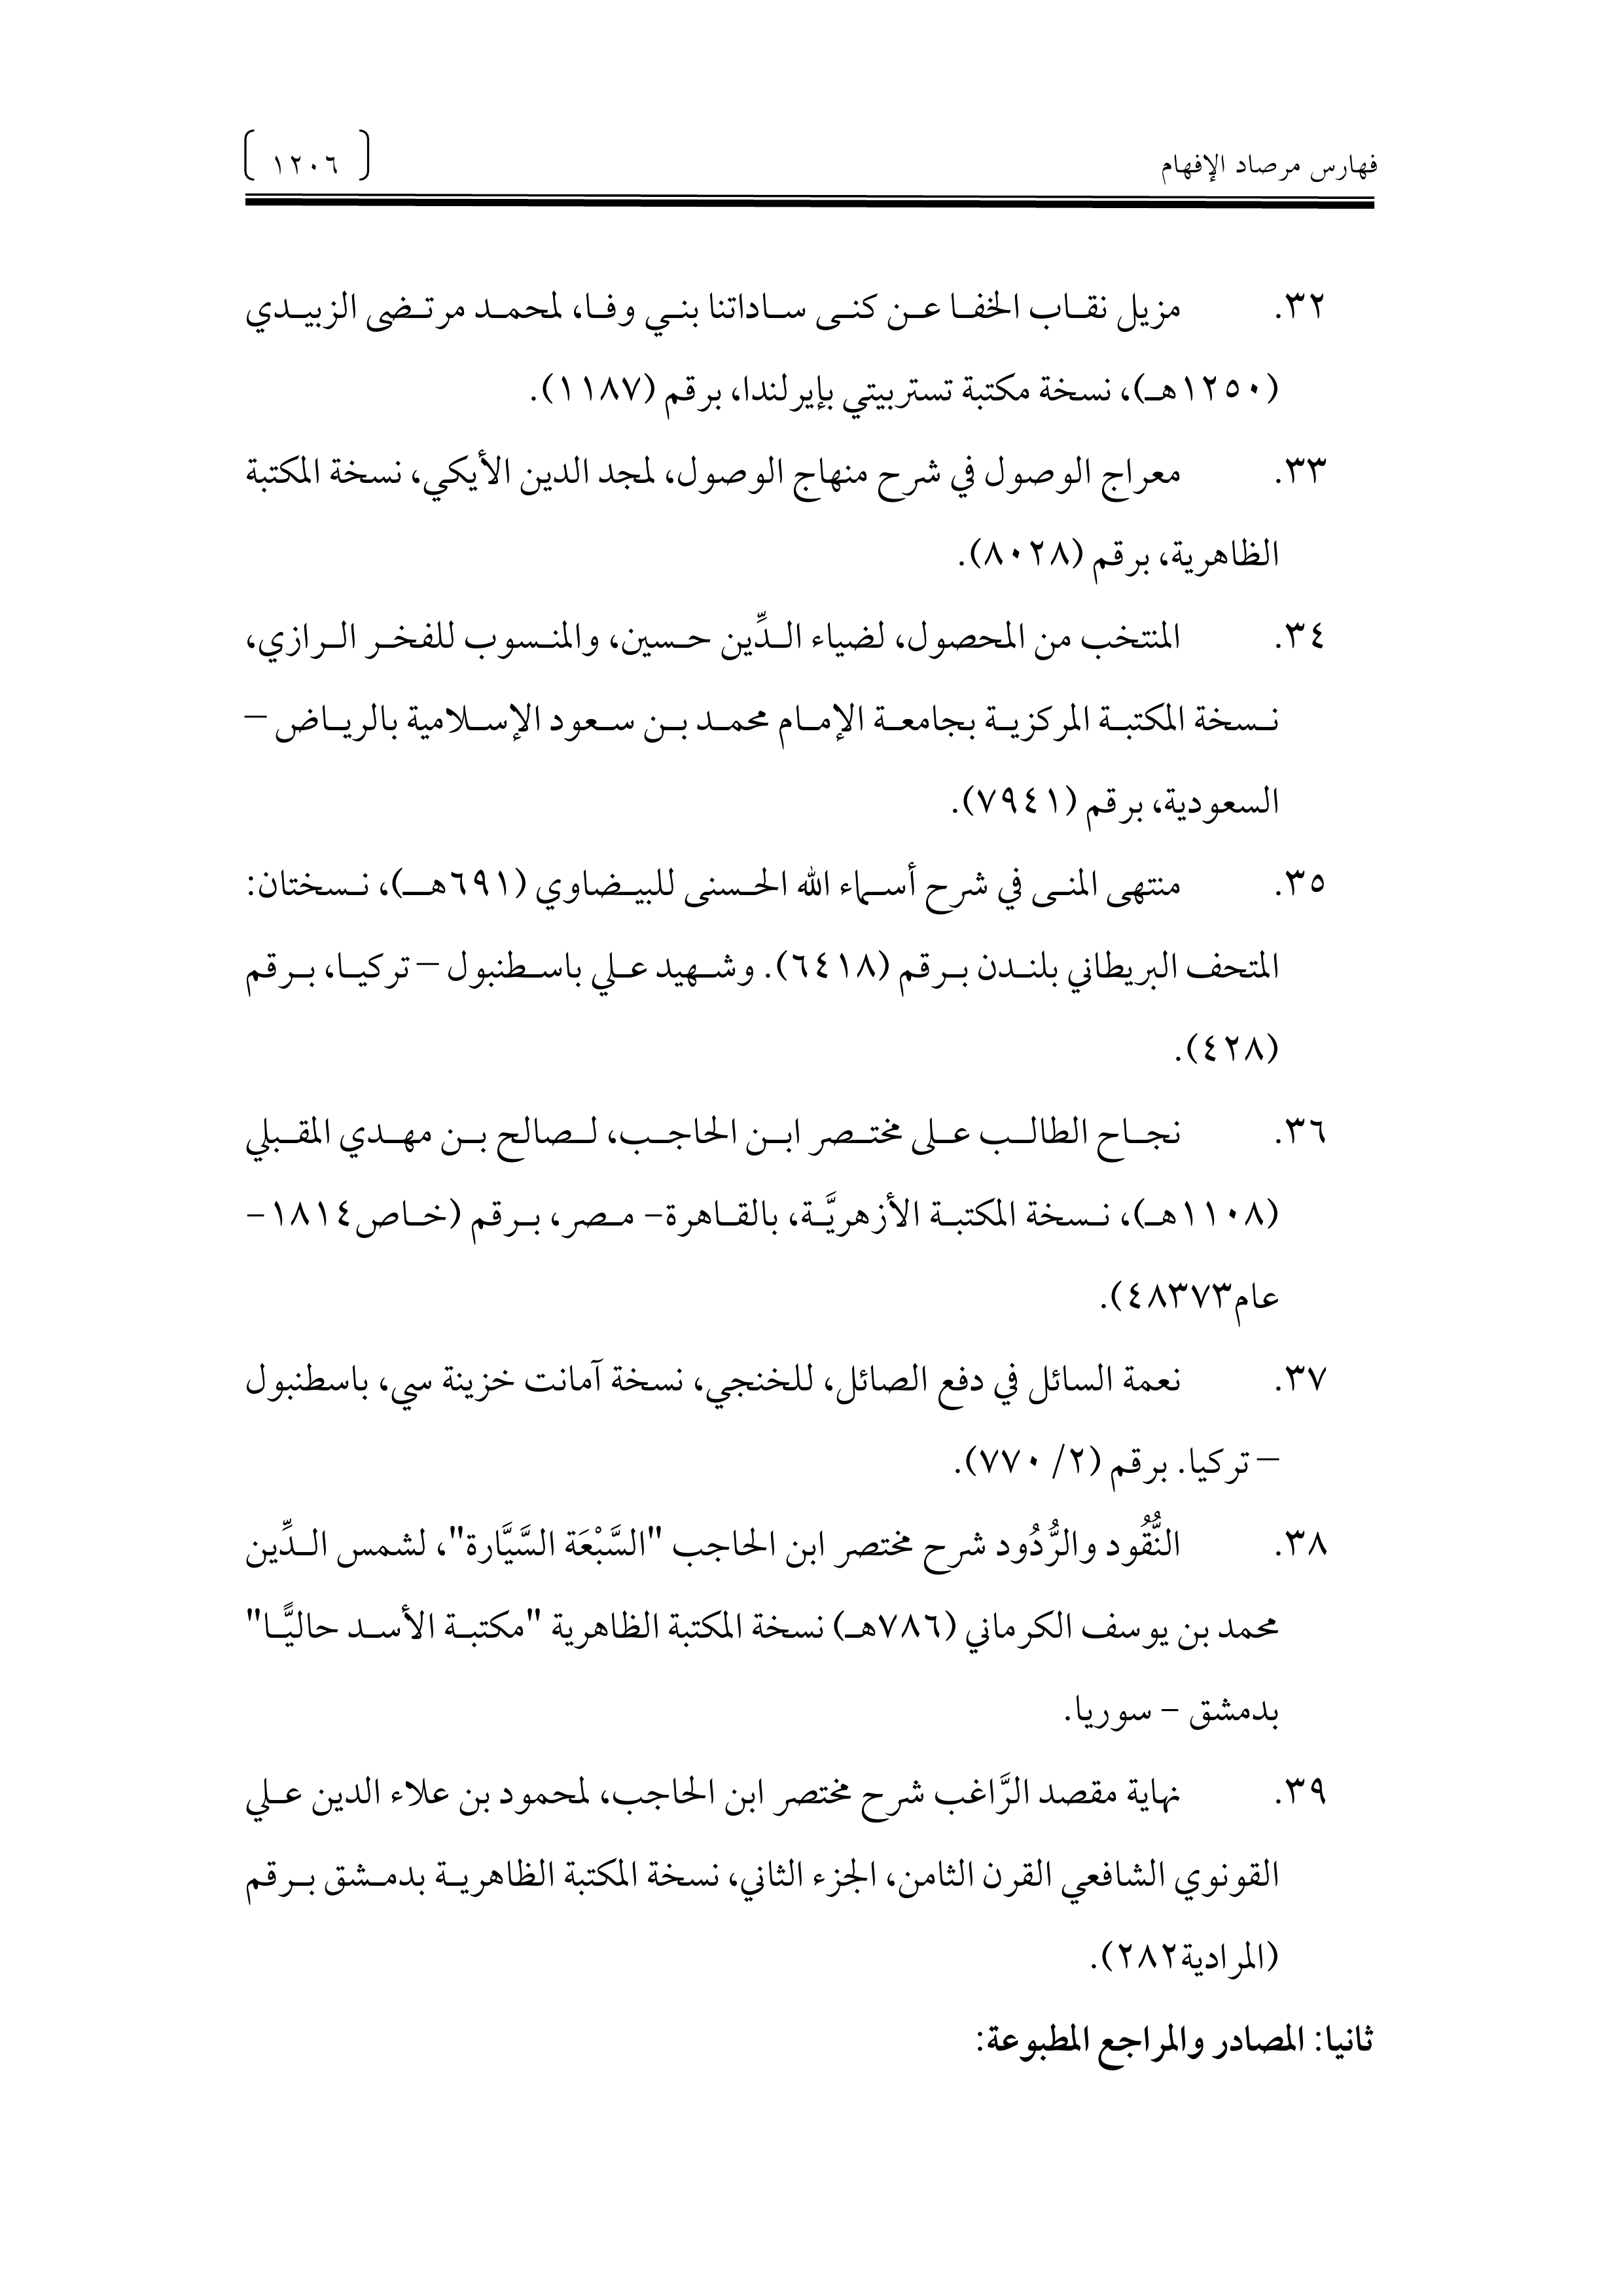 فهارس مرصاد الإفهام [ ١٢٠٦ ]
٣٢. مزيل نقاب الخفا عن كنى ساداتنا بني وفا، لمحمد مرتضى الزبيدي
(١٢٥٠هـ)، نسخة مكتبة تستربيتي بإيرلندا، برقم (١١٨٧).
٣٣. معراج الوصول في شرح منهاج الوصول، لمجد الدين الأيكي، نسخة المكتبة
الظاهرية، برقم (٨٠٢٨).
٣٤. المنتخب من المحصول، لضياء الدِّين حسين، والمنسوب للفخر الرازي،
نسخة المكتبة المركزية بجامعة الإمام محمد بن سعود الإسلامية بالرياض –
السعودية، برقم (٧٩٤١).
٣٥. منتهى المنى في شرح أسماء الله الحسنى للبيضاوي (٦٩١هـ)، نسختان:
المتحف البريطاني بلندن برقم (٦٤١٨). وشهيد علي باسطنبول – تركيا، برقم
(٤٢٨).
٣٦. نجاح الطالب على مختصر ابن الحاجب، لصالح بن مهدي المقبلي
(١١٠٨هـ)، نسخة المكتبة الأزهريَّة، بالقاهرة- مصر، برقم (خاص١٨١٤-
عام٤٨٣٧٣).
٣٧. نعمة السائل في دفع الصائل، للخنجي، نسخة آمانت خزينة سي، باسطنبول
– تركيا. برقم (٢/ ٧٧٠).
٣٨. النُّقُود والرُّدُود شرح مختصر ابن الحاجب "السَّبْعَة السَّيَّارة"، لشمس الدِّين
محمد بن يوسف الكرماني (٧٨٦هـ) نسخة المكتبة الظاهرية "مكتبة الأسد حاليًّا"
بدمشق - سوريا.
٣٩. نهاية مقصد الرَّاغب شرح مختصر ابن الحاجب، لمحمود بن علاء الدين علي
القونوي الشافعي القرن الثامن، الجزء الثاني، نسخة المكتبة الظاهرية بدمشق برقم
(المرادية٢٨٢).
ثانيا: المصادر والمراجع المطبوعة: